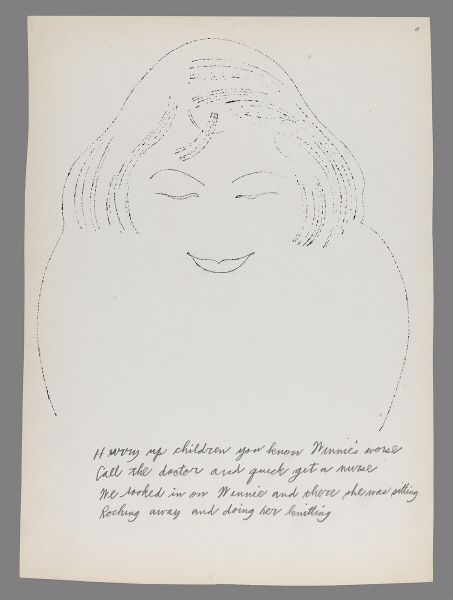 11
Hurry up children you know Winnie's worse
Call the doctor and quick get a nurse
We looked in on Winnie and there she was sitting
Rocking away and doing her knitting